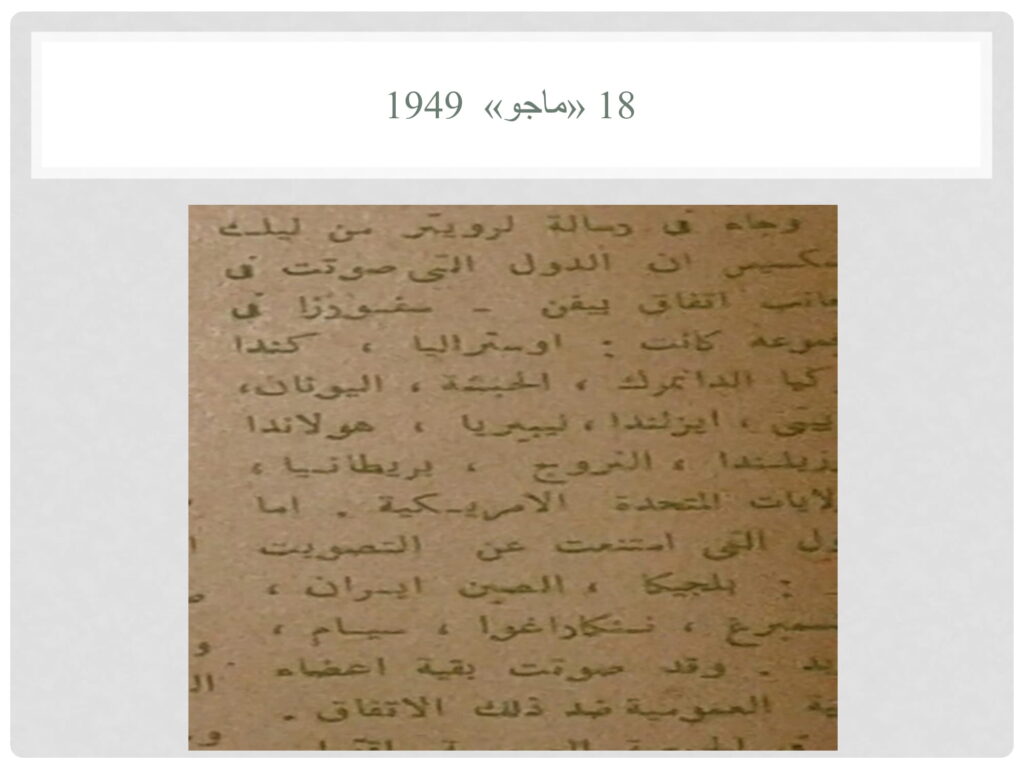 18 «ماجو» 1949
وجاء في رسالة لرويتر من ليك
سكسيس ان الدول التي صوتت في
جانب اتفاق بيفن - سفورزا في
كانت : اوستراليا ، كندا
الدانمرك ، الحبشة ، اليونان،
ايزلندا ، ليبيريا ، هولاندا
النروج ، بريطانيا ،
المتحدة الامريكية . اما
التي امتنعت عن التصويت
: بلجيكا ، الصين ايران ،
، نيكاراغوا ، سيام ،
. وقد صوتت بقية اعضاء
العمومية ضد ذلك الاتفاق .